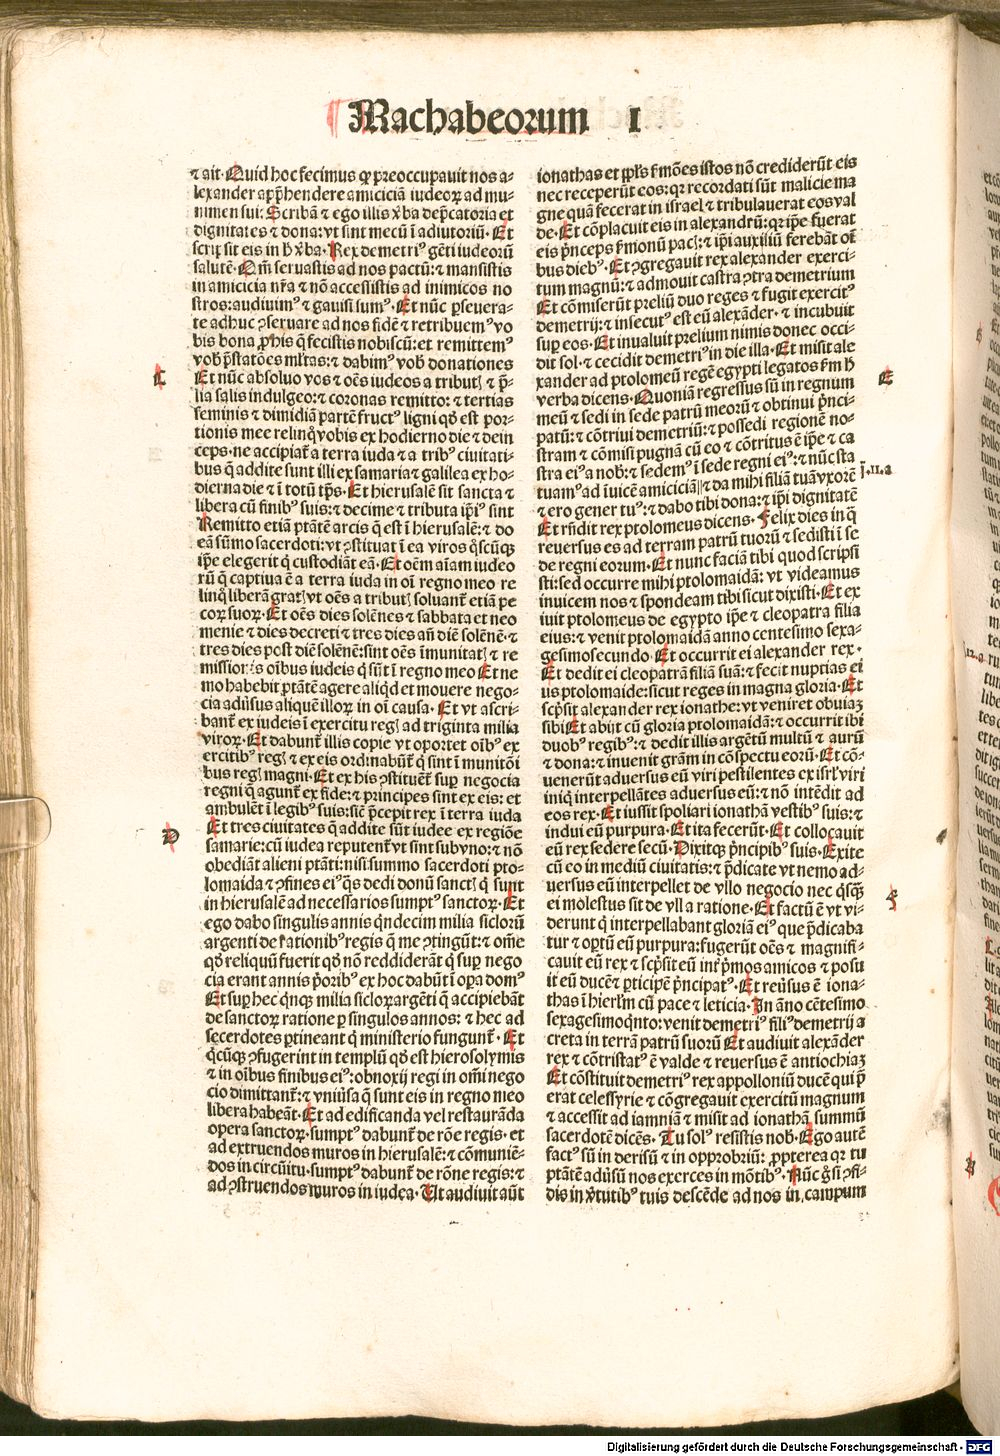 Machabeorum I
⁊ ait. Quid hoc fecimus qꝫ preoccupauit nos a-
lexander apꝓhendere amiciciā iudeoꝝ ad mu-
nimen sui: Scribā ⁊ ego illis v̾ba dep̄catoria et
dignitates ⁊ dona: vt sint mecū ī adiutoriū. Et
scripsit eis in h̄ v̾ba. Rex demetriꝰ gēti iudeorū
salutē. Qm̄ seruastis ad nos pactū: ⁊ mansistis
in amicicia nr̄a ⁊ nō accessistis ad inimicos no
stros: audiuimꝰ ⁊ gauisi sumꝰ. Et nūc ꝑseuera-
te adhuc ꝯseruare ad nos fidē ⁊ retribuemꝰ vo
bis bona ꝓ his q̄ fecistis nobiscū: et remittemꝰ
vob̄ p̄statōes ml̄tas: ⁊ dabimꝰ vob̄ donationes
C
Et nūc absoluo vos ⁊ oēs iudeos a tributꝭ ⁊ p̄-
lia salis indulgeo: ⁊ coronas remitto: ⁊ tertias
seminis ⁊ dimidiā partē fructꝰ ligni qd̄ est por-
tionis mee relinq̄ vobis ex hodierno die ⁊ dein
ceps: ne accipiat̄ a terra iuda ⁊ a tribꝰ ciuitati-
bus q̄ addite sunt illi ex samaria ⁊ galilea ex ho-
dierna die ⁊ ī totū tp̄s. Et hierusalē sit sancta ⁊
libera cū finibꝰ suis: ⁊ decime ⁊ tributa ip̄iꝰ sint
Remitto etiā ptātē arcis q̄ est ī hierusalē: ⁊ do
eā sūmo sacerdoti: vt ꝯstituat ī ea viros q̄scūqꝫ
ip̄e elegerit q̇ custodiāt eā. Et oēm aīam iudeo
rū q̄ captiua ē a terra iuda in oī regno meo re
linq̄ liberā gratꝭ vt oēs a tributꝭ soluant̄ etiā pe
coꝝ suoꝝ. Et oēs dies solēnes ⁊ sabbata et neo
menie ⁊ dies decreti ⁊ tres dies añ diē solēnē. ⁊
tres dies post diē solēnē: sint oēs īmunitatꝭ ⁊ re
missionis oībus iudeis q̇ sūt ī regno meo Et ne
mo habebit ptātē agere aliqd et mouere nego-
cia aduersus aliquē illoꝝ in oī causa. Et vt ascri-
bant̄ ex iudeis ī exercitu regꝭ ad triginta milia
viroꝝ. Et dabunt̄ illis copie vt oportet oībꝰ ex
ercitibꝰ regꝭ ⁊ ex eis ordinabūt̄ q̇ sint ī munitōi
bus regꝭ magni. Et ex his ꝯstituēt̄ suꝑ negocia
regni q̄ agunt̄ ex fide: ⁊ principes sint ex eis: et
ambulēt ī legibꝰ suis: sic̄ p̄cepit rex ī terra iuda
D
Et tres ciuitates q̄ addite sūt iudee ex regiōe
samarie: cū iudea reputent̄ vt sint sub vno: ⁊ nō
obediāt alieni ptāti: nisi summo sacerdoti pto-
lomaida ⁊ ꝯfines eiꝰ q̄s dedi donū sanctꝭ q̇ sunt
in hierusalē ad necessarios sumptꝰ sanctoꝝ. Et
ego dabo singulis annis qͥndecim milia siclorū
argenti de rationibꝰ regis q̄ me ꝯtingūt: ⁊ om̄e
qd̄ reliquū fuerit qd̄ nō reddiderāt q̇ suꝑ nego
cia erant annis p̄oribꝰ ex hoc dabūt ī oꝑa domꝰ
Et suꝑ hec qͥnqꝫ milia sicloꝝ argēti q̄ accipiebāt
de sanctoꝝ ratione ꝑ singulos annos: ⁊ hec ad
sacerdotes ꝑtineant q̇ ministerio fungunt̄. Et
q̇cūqꝫ ꝯfugerint in templū qd̄ est hierosolymis
⁊ in oībus finibus eiꝰ: obnoxij regi in om̄i nego
cio dimittant̄: ⁊ vniūsa q̄ sunt eis in regno meo
libera habeāt. Et ad edificanda vel restaurāda
opera sanctoꝝ. sumptꝰ dabunt̄ de rōe regis. et
ad extruendos muros in hierusalē: ⁊ cōmuniē-
dos in circūitu. sumptꝰ dabunt̄ de rōne regis: ⁊
ad ꝯstruendos muros in iudea. Ut audiuit aūt
ionathas et pp̄ls s̄mōes istos nō crediderūt eis
nec receperūt eos: qꝛ recordati sūt malicie ma
gne quā fecerat in israel ⁊ tribulauerat eos val
de. Et cōplacuit eis in alexandrū: qꝛ ip̄e fuerat
eis p̄nceps s̄monū pacꝭ: ⁊ ip̄i auxiliū ferebāt oī
bus diebꝰ. Et ꝯgregauit rex alexander exerci-
tum magnū: ⁊ admouit castra ꝯtra demetrium
Et cōmiserūt preliū duo reges ⁊ fugit exercitꝰ
demetrij: ⁊ insecutꝰ est eū alexāder. ⁊ incubuit
suꝑ eos. Et inualuit prelium nimis donec occi-
dit sol. ⁊ cecidit demetriꝰ in die illa. Et misit ale
xander ad ptolomeū regē egypti legatos s̄m h̄
E
verba dicens. Quoniā regressus sū in regnum
meū ⁊ sedi in sede patrū meorū ⁊ obtinui p̄nci-
patū: ⁊ cōtriui demetriū: ⁊ possedi regionē no-
stram ⁊ cōmisi pugnā cū eo ⁊ cōtritus ē ip̄e ⁊ ca
stra eiꝰ a nob̄: ⁊ sedemꝰ ī sede regni eiꝰ: ⁊ nūc sta
j.11.a
tuamꝰ ad īuicē amiciciā ⁊ da mihi filiā tuā vxorē
⁊ ero gener tuꝰ: ⁊ dabo tibi dona: ⁊ ip̄i dignitatē
Et rn̄dit rex ptolomeus dicens. Felix dies in q̄
reuersus es ad terram patrū tuorū ⁊ sedisti ī se
de regni eorum. Et nunc faciā tibi quod scripsi
sti: sed occurre mihi ptolomaidā: vt videamus
inuicem nos ⁊ spondeam tibi sicut dixisti. Et ex
iuit ptolomeus de egypto ip̄e ⁊ cleopatra filia
eius: ⁊ venit ptolomaidā anno centesimo sexa-
gesimosecundo Et occurrit ei alexander rex.
Et dedit ei cleopatrā filiā suā: ⁊ fecit nuptias ei
us ptolomaide: sicut reges in magna gloria. Et
scp̄sit alexander rex ionathe: vt veniret obuiaꝫ
sibi Et abijt cū gloria ptolomaidā: ⁊ occurrit ibi
duobꝰ regibꝰ: ⁊ dedit illis argētū multū ⁊ aurū
⁊ dona: ⁊ inuenit grām in cōspectu eorū. Et cō-
uenerūt aduersus eū viri pestilentes ex isrl̄ viri
iniq̇ interpellātes aduersus eū: ⁊ nō intēdit ad
eos rex. Et iussit spoliari ionathā vestibꝰ suis: ⁊
indui eū purpura. Et ita fecerūt. Et collocauit
eū rex sedere secū. Dixitqꝫ p̄ncipibꝰ suis. Exite
cū eo in mediū ciuitatis: ⁊ p̄dicate vt nemo ad-
uersus eū interpellet de vllo negocio nec q̄sqꝫ
F
ei molestus sit de vlla ratione. Et factū ē vt vi-
derunt q̇ interpellabant gloriā eiꝰ que p̄dicaba
tur ⁊ oꝑtū eū purpura: fugerūt oēs ⁊ magnifi-
cauit eū rex ⁊ scp̄sit eū int̄ p̄mos amicos ⁊ posu
it eū ducē ⁊ ꝑticipē p̄ncipatꝰ. Et reūsus ē iona-
thas ī hierl̄m cū pace ⁊ leticia. In āno cētesimo
sexagesimoqͥnto: venit demetriꝰ filiꝰ demetrij a
creta in terrā patrū suorū Et audiuit alexāder
rex ⁊ cōtristatꝰ ē valde ⁊ reuersus ē antiochiaꝫ
Et cōstituit demetriꝰ rex appolloniū ducē qui p̄
erat celessyrie ⁊ cōgregauit exercitū magnum
⁊ accessit ad iamniā ⁊ misit ad ionathā summū
sacerdotē dicēs. Tu solꝰ resistis nob̄. Ego autē
factꝰ sū in derisū ⁊ in opprobriū: ꝓpterea qꝛ tu
ptātē adūsū nos exerces in mōtibꝰ. Nūc g̊ si ꝯfi-
dis in v̾tutibꝰ tuis descēde ad nos in campum
Digitalisierung gefördert durch die Deutsche Forschungsgemeinschaft - DFG